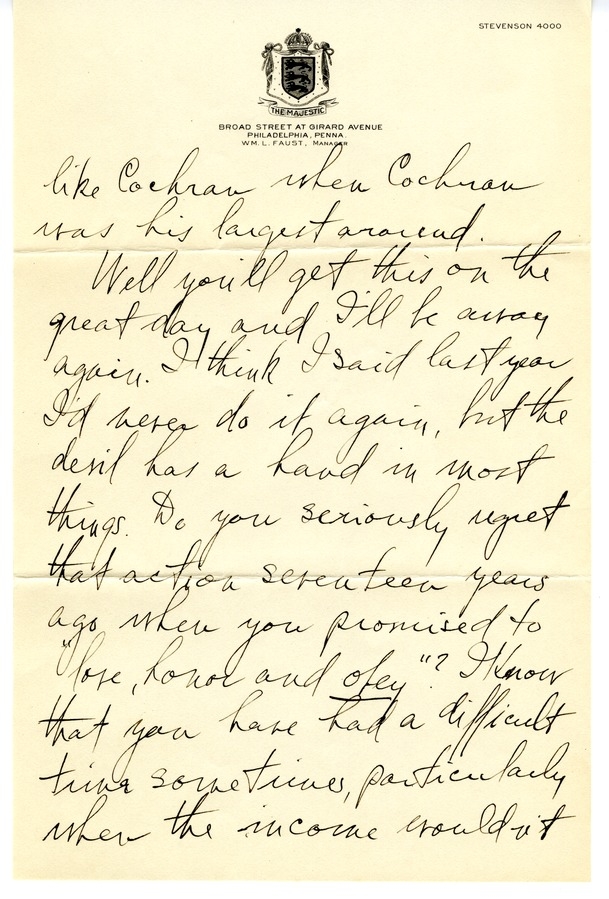 STEVENSON 4000
THE MAJESTIC
BROAD STREET AT GIRARD AVENUE
PHILADELPHIA, PENNA.
WM. L. FAUST, MANAGER
like Cochran when Cochran
was his largest around.
Well you'll get this on the
great day and I'll be away
again. I think I said last year
I'd never do it again, but the
devil has a hand in most
things. Do you seriously regret
that action seventeen years
ago when you promised to
"love, honor and obey"? I know
that you have had a difficult
time sometimes, particularly
when the income wouldn't